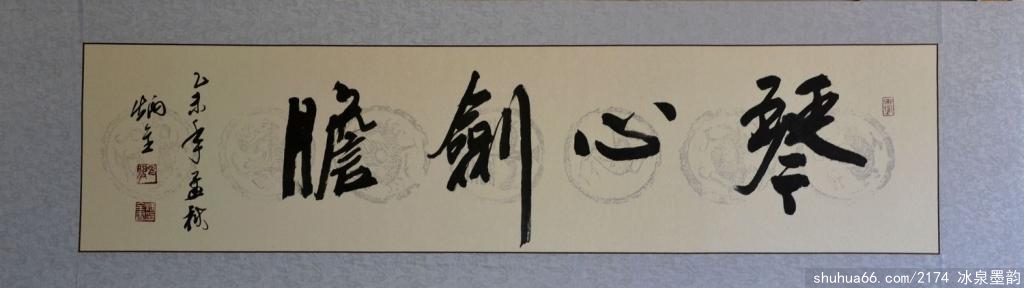 琴心劍膽
乙未年孟秋
炳全
shuhua66.com/2174 冰泉墨韵